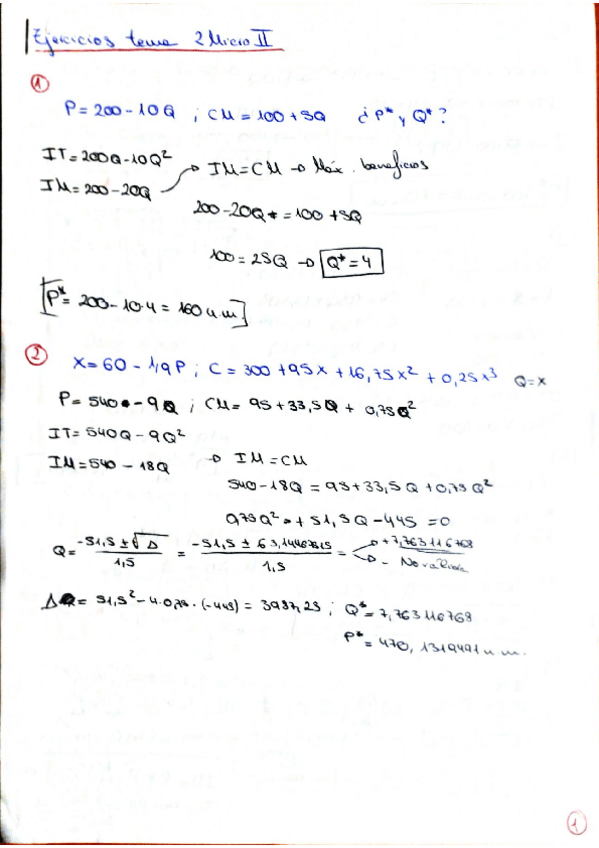 Ejercicios tema 2 Micro II
1
P = 200 - 10Q ; CM = 100 + 5Q ¿P* y Q*?
IT = 200Q - 10Q²
IM = 200 - 20Q → IM = CM → Máx. beneficios
200 - 20Q* = 100 + 5Q
100 = 25Q → Q* = 4
[P* = 200 - 10·4 = 160 u.m]
2
X = 60 - 1/9 P ; C = 300 + 95x + 16,75x² + 0,25x³ Q = x
P = 540 - 9Q ; CM = 95 + 33,5Q + 0,75Q²
IT = 540Q - 9Q²
IM = 540 - 18Q → IM = CM
540 - 18Q = 95 + 33,5Q + 0,75Q²
0,75Q² + 51,5Q - 445 = 0
Q = (-51,5 ± √Δ) / 1,5 = (-51,5 ± 63,14467515) / 1,5 = → +7,763116768
→ - No válida
Δ = 51,5² - 4·0,75·(-445) = 3987,25 ; Q* = 7,763116768
P* = 470,1319491 u.m.
1